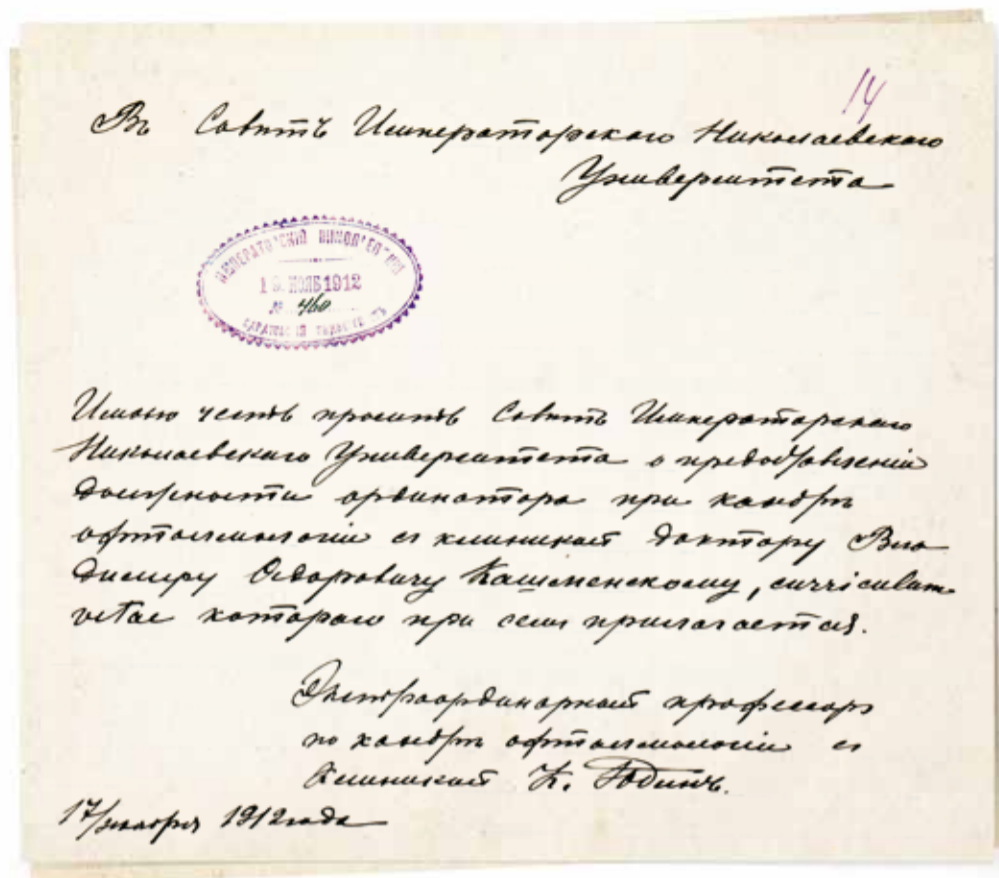 14
Въ Совѣтъ Императорскаго Николаевскаго
Университета
ИМПЕРАТОРСКІЙ НИКОЛАЕВСКІЙ
19 НОЯБ 1912
№ 460
САРАТОВСКІЙ УНИВЕРСИТЕТЪ
Имѣю честь просить Совѣтъ Императорскаго
Николаевскаго Университета о предоставленіи
должности ординатора при каѳедрѣ
офталмологіи съ клиникой доктору Вла
димиру Ѳедоровичу Кашменскому, curriculum
vitae котораго при семъ прилагается.
Экстраординарный профессоръ
по каѳедрѣ офталмологіи съ
клиникой К. Юдинъ.
17/ноября 1912 года